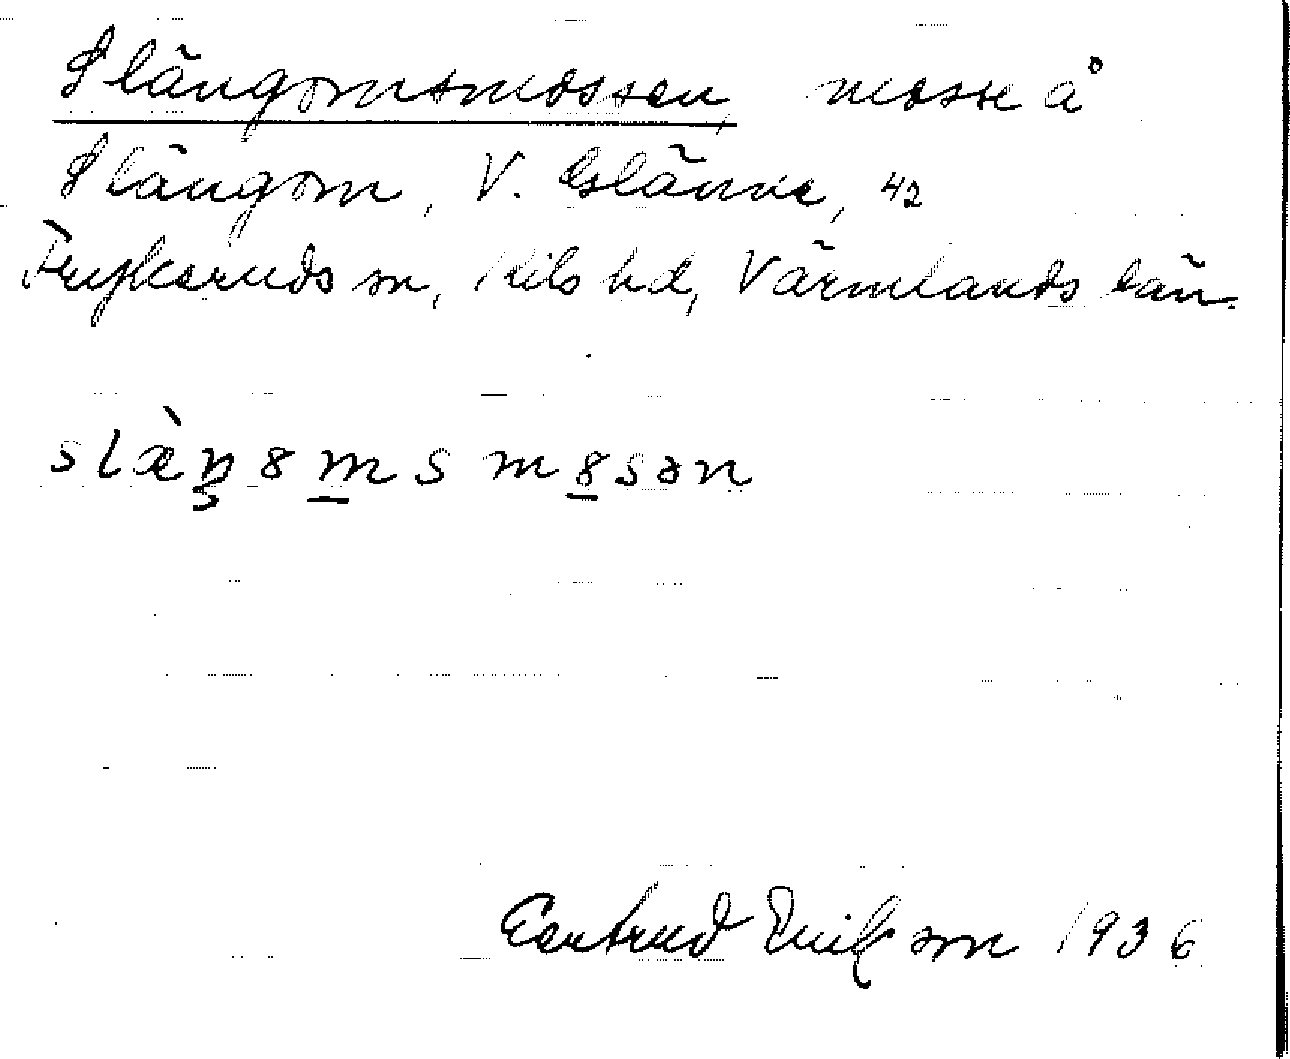 Slängomsmossen, mosse å
Slängom, V. Glänne, 42
Frykeruds sn, Kils hd, Värmlands län.
slæ̀ŋ8m̲s m8̲sən
Gertrud Eriksson 1936